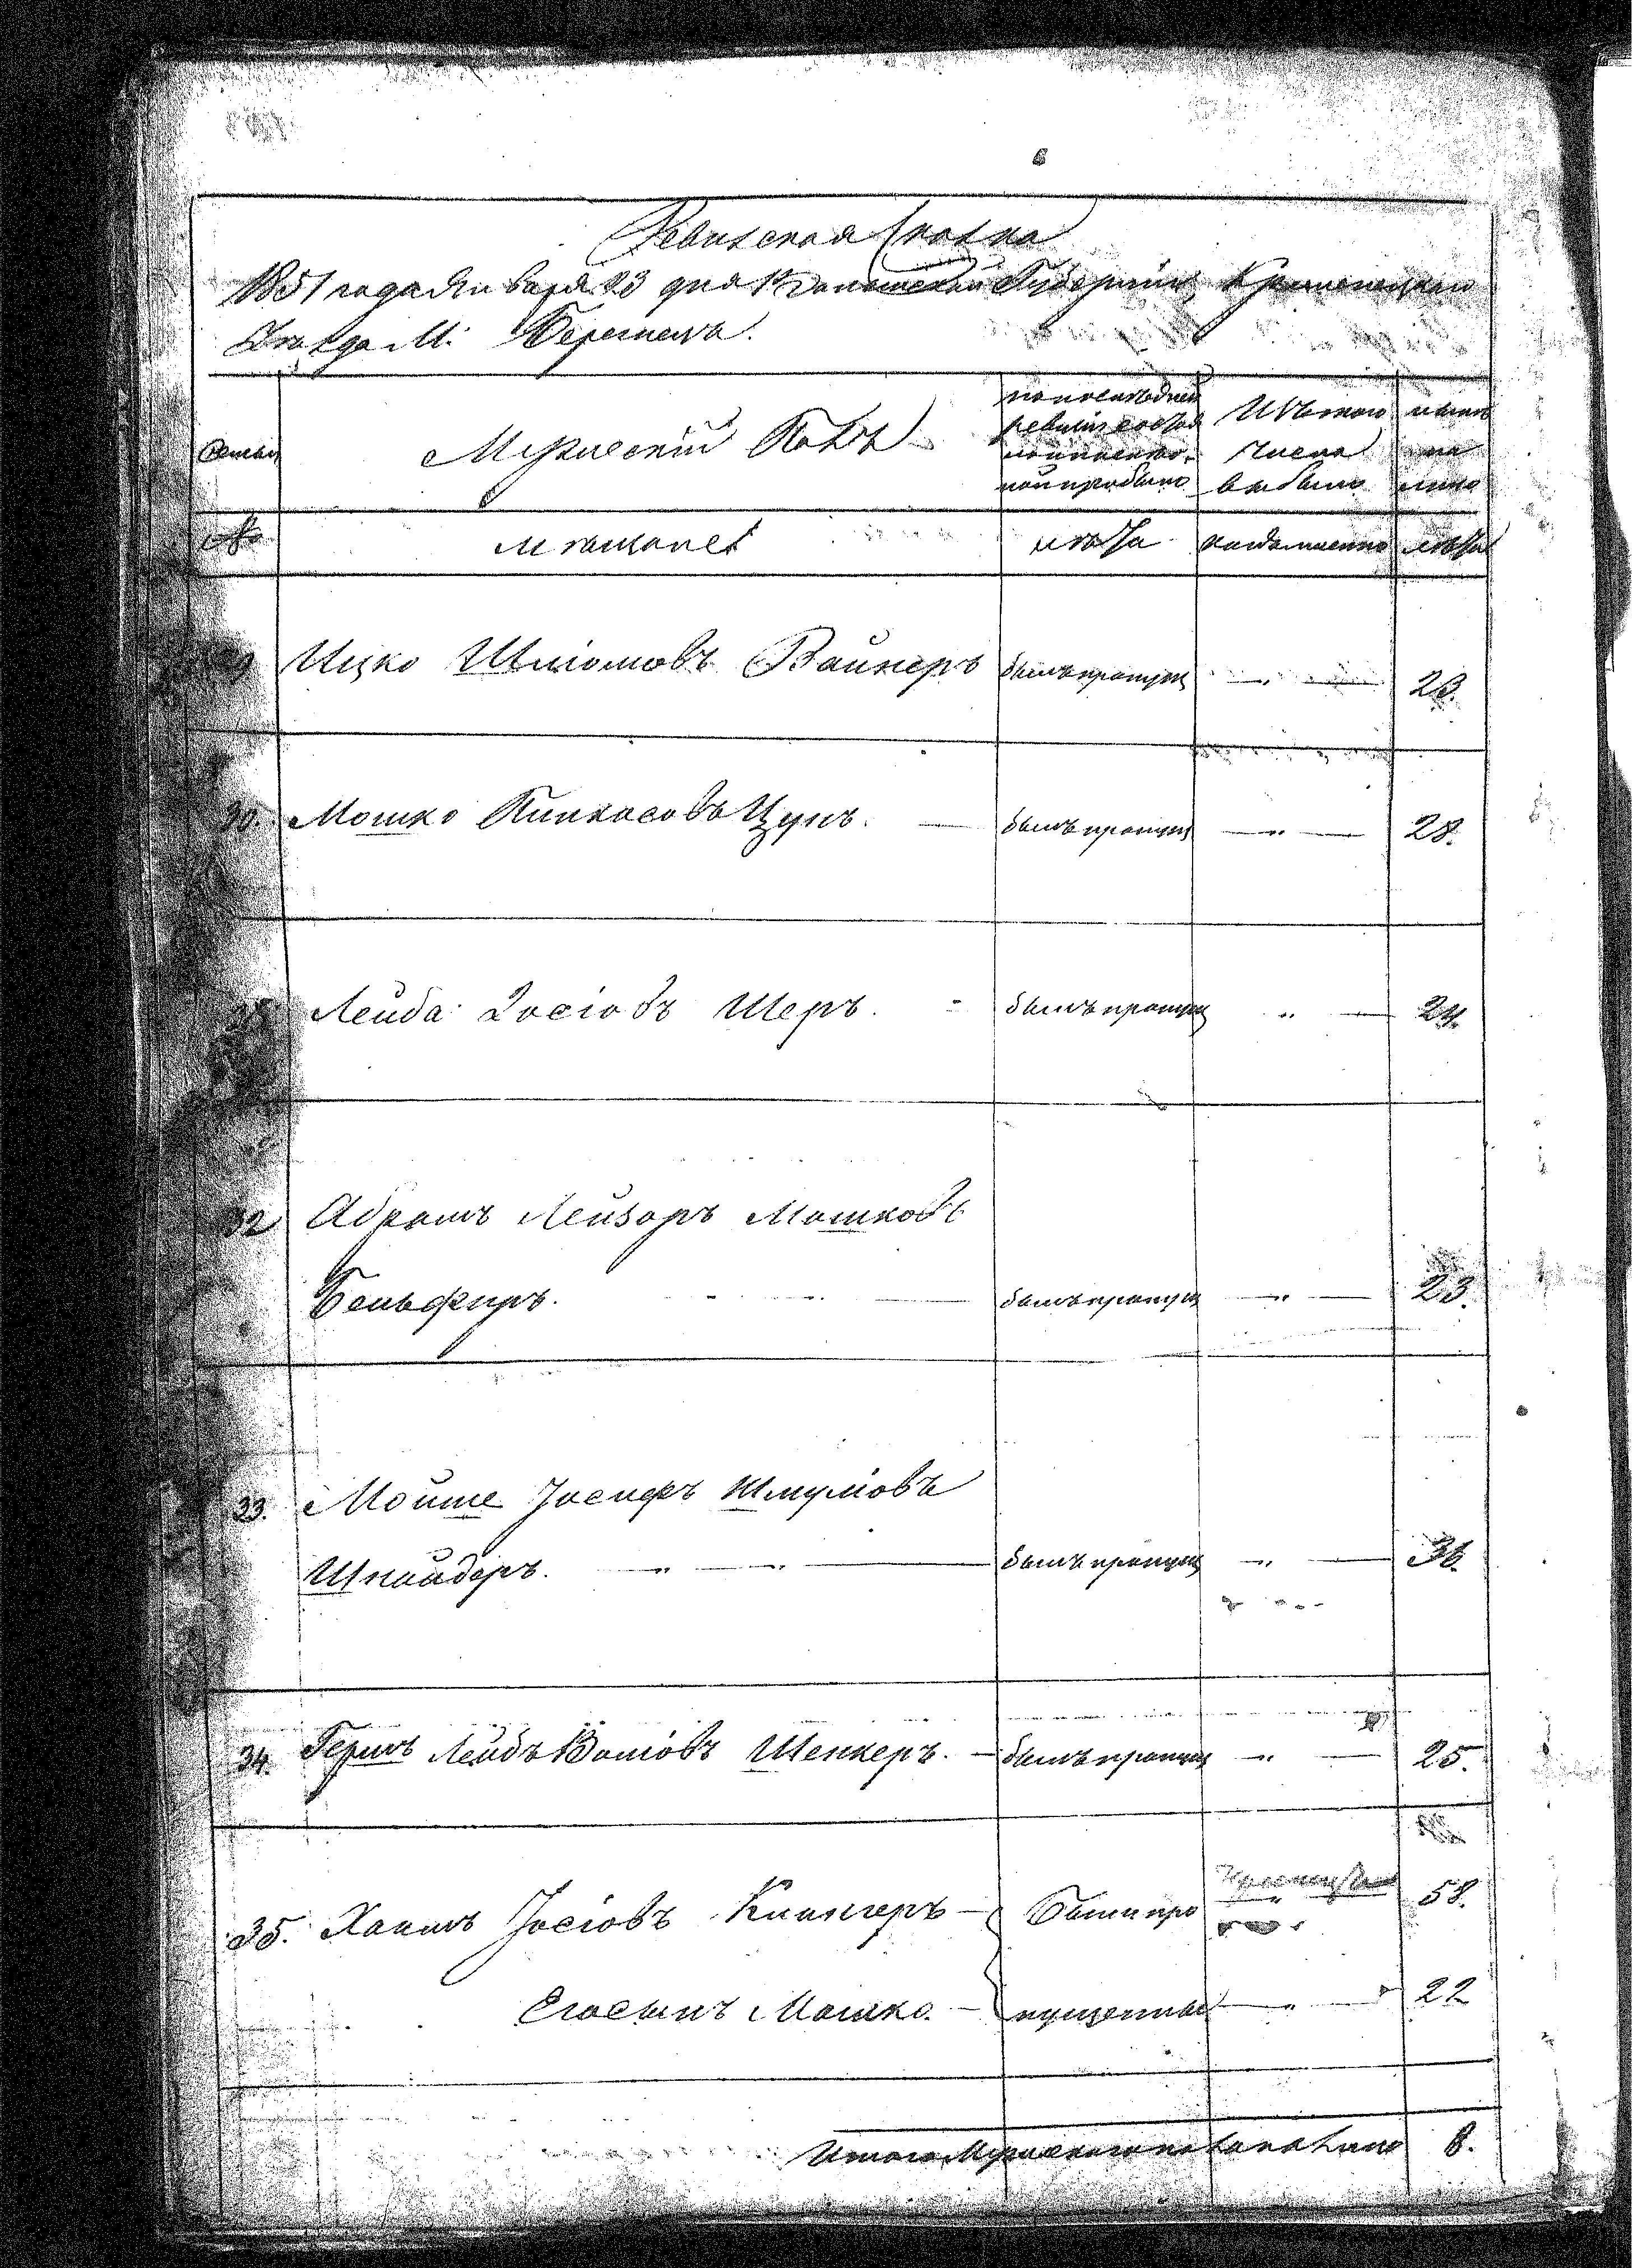 Ревизская Сказка
1851 года Января 23 дня Волынской Губерніи Кременецкаго
Уезда М: Бережецъ.
Семьи
Мужескій Полъ
по последней
ревизіи состояло
и
прибыло
Изъ того
числа
выбыло
ныне
на
лицо
№
Мещане
лѣта
когда именно
лѣта
29 Ицко Шліомовъ Вайнеръ былъ пропущ — 23.
30. Мошко Пинкасовъ Цупъ. — былъ пропущ — 28.
31 Лейба Іосіовъ Шеръ. - былъ пропущ — 24.
32 Абрамъ Лейзоръ Мошковъ
Бельферъ. — былъ пропущ — 23.
33. Мойше Іосифъ Шмуліовъ
Шнайдеръ. — былъ пропущ — 36.
34. Гершъ Лейбъ Воліовъ Шенкеръ. — былъ пропущ — 25.
35. Хаимъ Іосіовъ Клингеръ — Были про 58.
Его сынъ Мошко. — пущенные — 22
Итого Мужескаго пола на лицо 8.